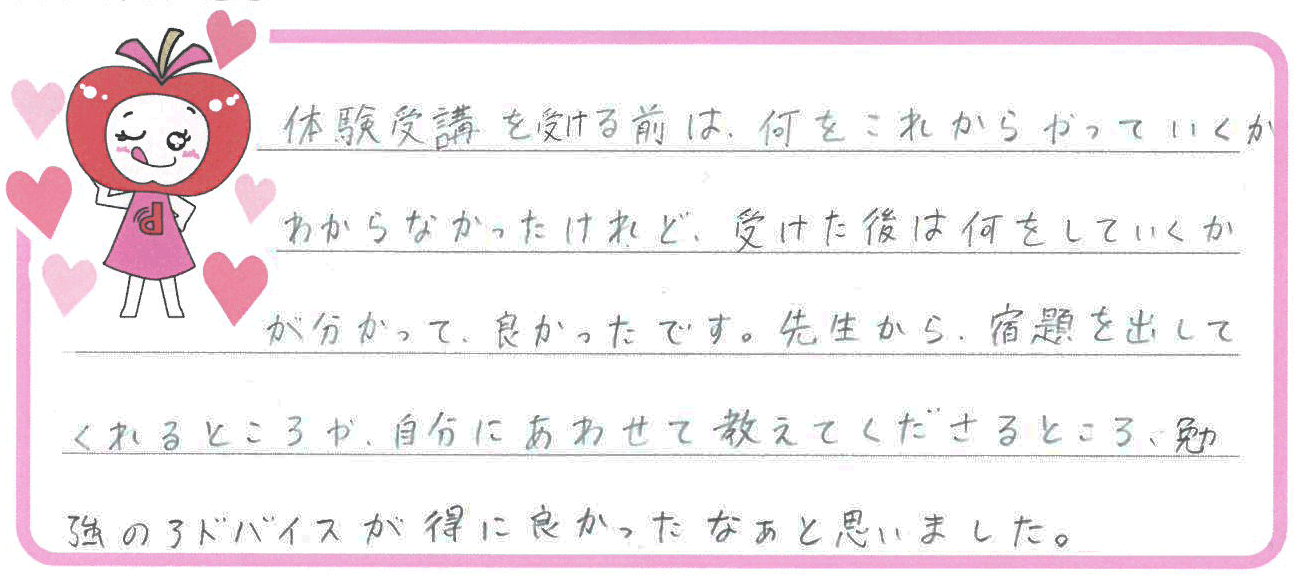 体験受講を受ける前は、何をこれからやっていくか
わからなかったけれど、受けた後は何をしていくか
が分かって、良かったです。先生から、宿題を出して
くれるところや、自分にあわせて教えてくださるところ、勉
強のアドバイスが得に良かったなぁと思いました。